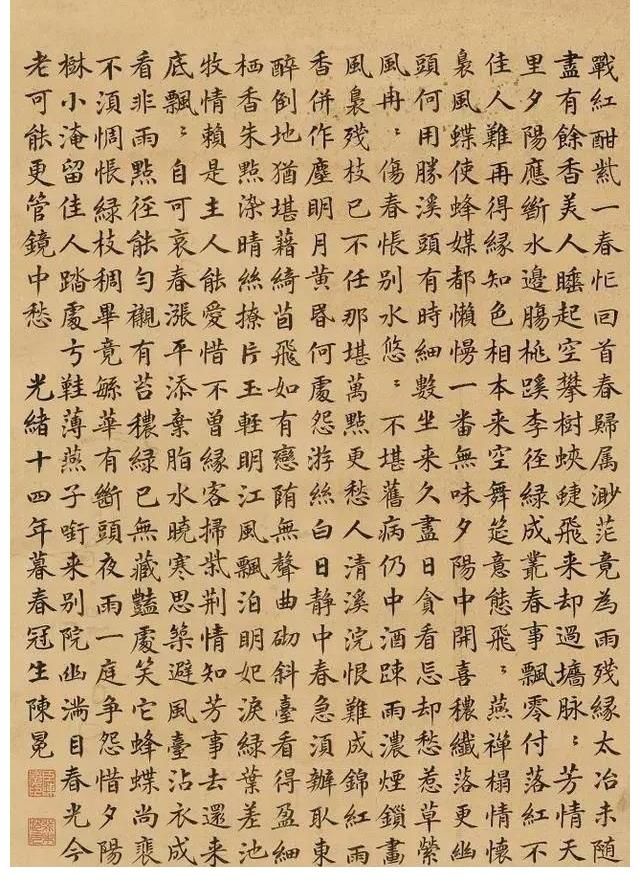 戰紅酣紫一春忙回首春歸属渺茫竟為雨殘緣太冶未随
盡有餘香美人睡起空攀樹蛺蜨飛来却過墻脉：芳情天
里夕陽應斷水邊腸桃蹊李徑綠成叢春事飄零付落紅不
佳人難再得緣知色相本来空舞筵意態飛：燕禪榻情懷
裊風蝶使蜂媒都懶慢一番無味夕陽中開喜穠纖落更幽
頭何用勝溪頭有時細數坐来久盡日貪看忘却愁惹草縈
風冉：傷春悵別水悠：不堪舊病仍中酒踈雨濃煙鎖畫
風裊殘枝已不任那堪萬點更愁人清溪浣恨難成錦紅雨
香併作塵明月黄昏何處怨游絲白日静中春急湏辦取東
醉倒地猶堪藉綺茵飛如有戀陏無聲曲砌斜臺看得盈細
栖香朱點染晴絲撩片玉輊明江風飄泊明妃淚綠葉差池
牧情賴是主人能愛惜不曾緣客掃柴荆情知芳事去還来
底飄：自可哀春漲平添棄脂水曉寒思築避風臺沾衣成
看非雨點徑能勻襯有苔穠綠已無藏豔處笑它蜂蝶尚裵
不湏惆悵綠枝稠畢竟緐華有斷頭夜雨一庭争怨惜夕陽
小淹留佳人踏處弓鞋薄燕子啣来別院幽满目春光今
老可能更管鏡中愁 光緒十四年暮春冠生陳冕